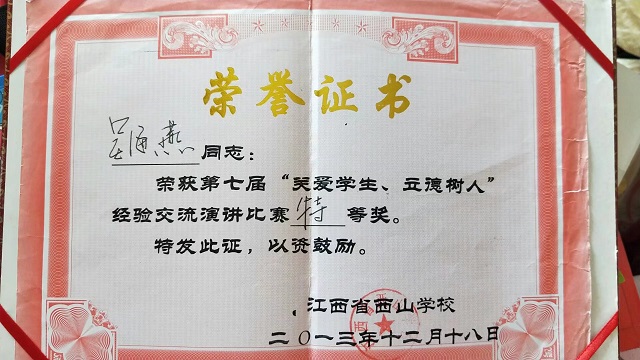 荣誉证书
吴海燕 同志：
荣获第七届“关爱学生、立德树人”
经验交流演讲比赛 特 等奖。
特发此证，以资鼓励。
江西省西山学校
二〇一三年十二月十八日